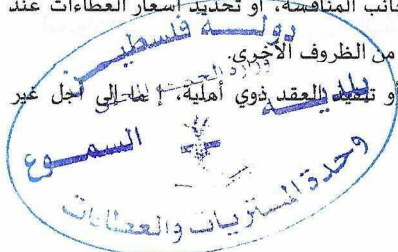 جانب المنافسة، أو تحديد أسعار العطاءات عند
من الظروف الأخرى.
أو تنفيذ العقد ذوي أهلية، إما إلى أجل غير
دولة فلسطين
وزارة الحكم المحلي
بلدية السموع
وحدة المشتريات والعطاءات